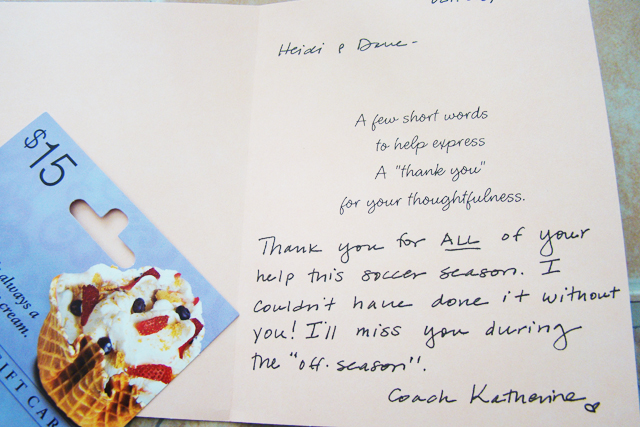 Heidi & Dave-
A few short words
to help express
A "thank you"
for your thoughtfulness.
Thank you for ALL of your
help this soccer season. I
couldn't have done it without
you! I'll miss you during
the "off-season".
Coach Katherine
$15
always a
cream.
GIFT CAR